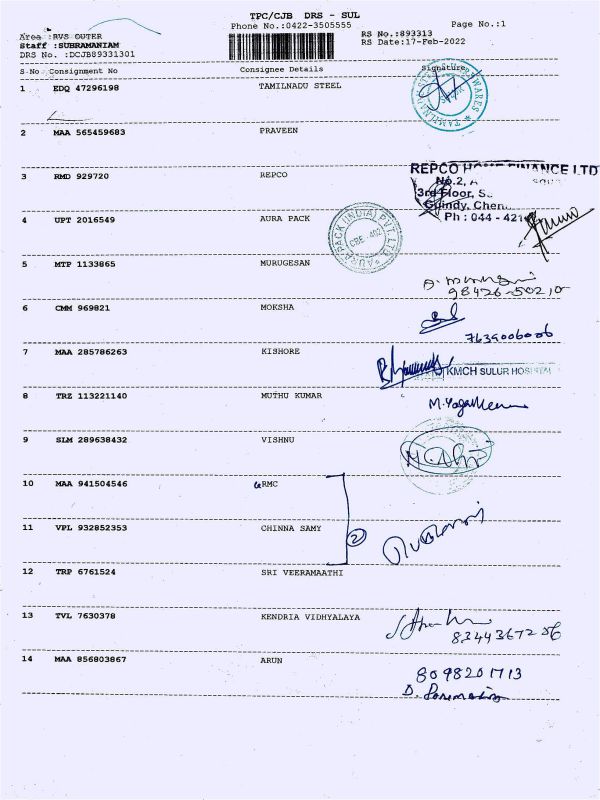 TPC/CJB DRS - SUL
Phone No.:0422-3505555
Page No.:1
Area :RVS OUTER
Staff :SUBRAMANIAM
DRS No. :DCJB89331301
RS No.:893313
RS Date:17-Feb-2022
S-No Consignment No Consignee Details Signature
1 EDQ 47296198 TAMILNADU STEEL
2 MAA 565459683 PRAVEEN
3 RMD 929720 REPCO
REPCO HOME FINANCE LTD
No.2, A
3rd Floor, S
Guindy, Chen
Ph : 044 - 421
4 UPT 2016549 AURA PACK
AURA PACK (INDIA) PVT LTD
CBE - 402
5 MTP 1133865 MURUGESAN
98426-50210
6 CMM 969821 MOKSHA
7639006006
7 MAA 285786263 KISHORE
KMCH SULUR HOSPITAL
8 TRZ 113221140 MUTHU KUMAR
9 SLM 289638432 VISHNU
10 MAA 941504546 GRMC
11 VPL 932852353 CHINNA SAMY
2
12 TRP 6761524 SRI VEERAMAATHI
13 TVL 7630378 KENDRIA VIDHYALAYA
8344367256
14 MAA 856803867 ARUN
8098201713